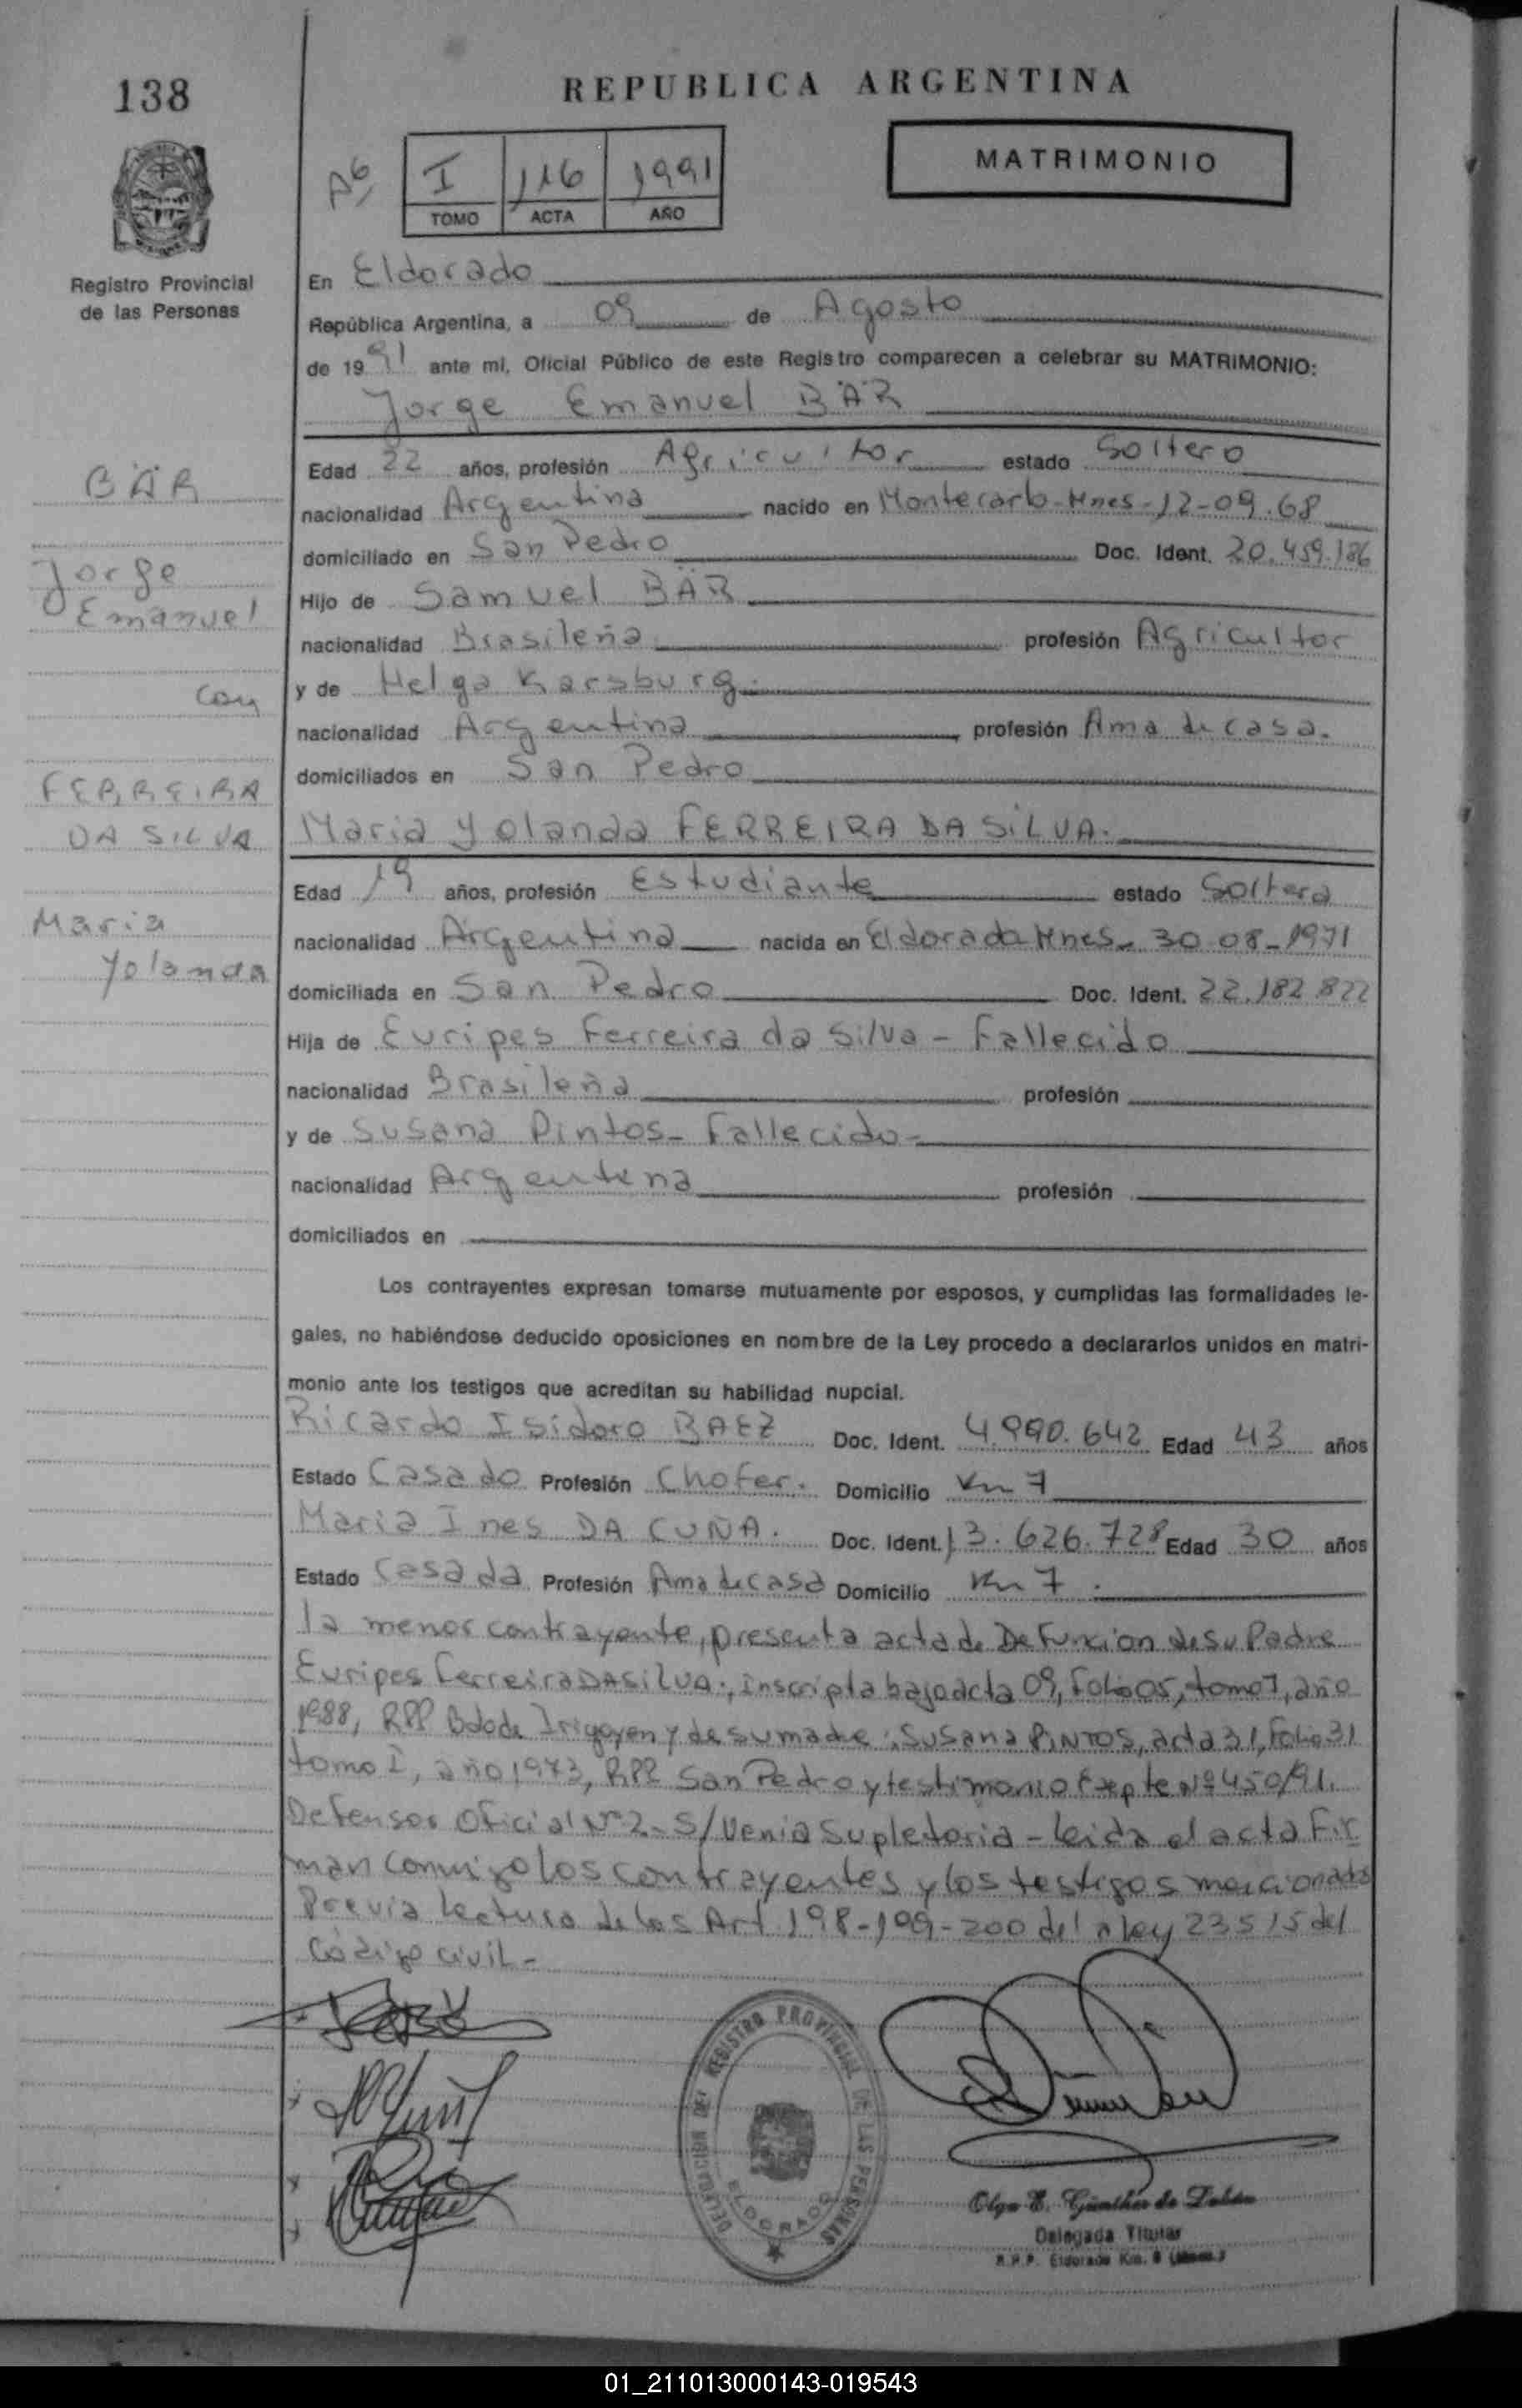 138
REPUBLICA ARGENTINA
I 116 1991
TOMO ACTA AÑO
MATRIMONIO
Registro Provincial
de las Personas
En Eldorado
República Argentina, a 09 de Agosto
de 1991 ante mi, Oficial Público de este Registro comparecen a celebrar su MATRIMONIO:
Jorge Emanuel BÄR
Edad 22 años, profesión Agricultor estado Soltero
BÄR
nacionalidad Argentina nacido en Montecarlo-Mnes-12-09.68
domiciliado en San Pedro Doc. Ident. 20.459.186
Jorge
Hijo de Samuel BÄR
Emanuel
nacionalidad Brasileña profesión Agricultor
con
y de Helga Karsburg.
nacionalidad Argentina profesión Ama de casa.
domiciliados en San Pedro
FERREIRA
DA SILVA
Maria Yolanda FERREIRA DA SILVA.
Edad 19 años, profesión Estudiante estado Soltera
Maria
nacionalidad Argentina nacida en Eldorado Mnes- 30-08-1971
Yolanda
domiciliada en San Pedro Doc. Ident. 22.182.822
Hija de Euripes Ferreira da Silva - Fallecido
nacionalidad Brasileña profesión
y de Susana Pintos- Fallecido-
nacionalidad Argentina profesión
domiciliados en
Los contrayentes expresan tomarse mutuamente por esposos, y cumplidas las formalidades le-
gales, no habiéndose deducido oposiciones en nombre de la Ley procedo a declararlos unidos en matri-
monio ante los testigos que acreditan su habilidad nupcial.
Ricardo Isidoro BAEZ Doc. Ident. 4.990.642 Edad 43 años
Estado Casado Profesión Chofer. Domicilio Km 7
Maria Ines DA CUÑA. Doc. Ident. 13.626.728 Edad 30 años
Estado Casada Profesión Ama de casa Domicilio Km 7.
la menor contrayente, presenta acta de Defuncion de su Padre
Euripes Ferreira DA SILVA., Inscripta bajo acta 09, Folio 05, tomo I, año
1988, RPP Bdo de Irigoyen y de su madre: Susana PINTOS, acta 31, Folio 31
tomo I, año 1973, RPP San Pedro y testimonio Expte Nº 450/91.
Defensor Oficial Nº 2- S/ Venia Supletoria - leida el acta Fir
man conmigo los contrayentes y los testigos mencionados
Previa lectura de los Art 198-199-200 de la ley 23515 del
Código civil-
DELEGACION DEL REGISTRO PROVINCIAL DE LAS PERSONAS
ELDORADO
Olga E. Günther de
Delegada Titular
R.P.P. Eldorado Km.
01_211013000143-019543